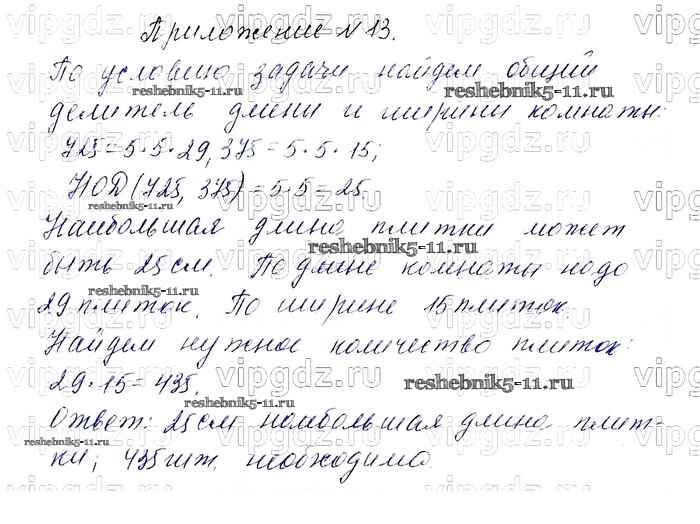 Приложение №13.
По условию задачи найдем общий
делитель длины и ширины комнаты:
725=5·5·29, 375=5·5·15;
НОД(725, 375)=5·5=25.
Наибольшая длина плитки может
быть 25см. По длине комнаты надо
29 плиток. По ширине 15 плиток.
Найдем нужное количество плиток:
29·15=435.
Ответ: 25см наибольшая длина плит-
ки, 435 шт. необходимо.
vipgdz.ru
reshebnik5-11.ru